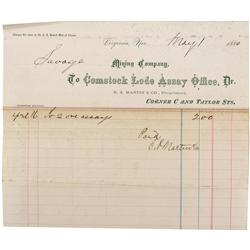 Virginia, Nev. May 1 1880
Savage
Mining Company,
To Comstock Lode Assay Office, Dr.
E. A. MARTIN & CO., Proprietors,
CORNER C AND TAYLOR STS.
April 16 To 2 ore assays 2.00
Paid